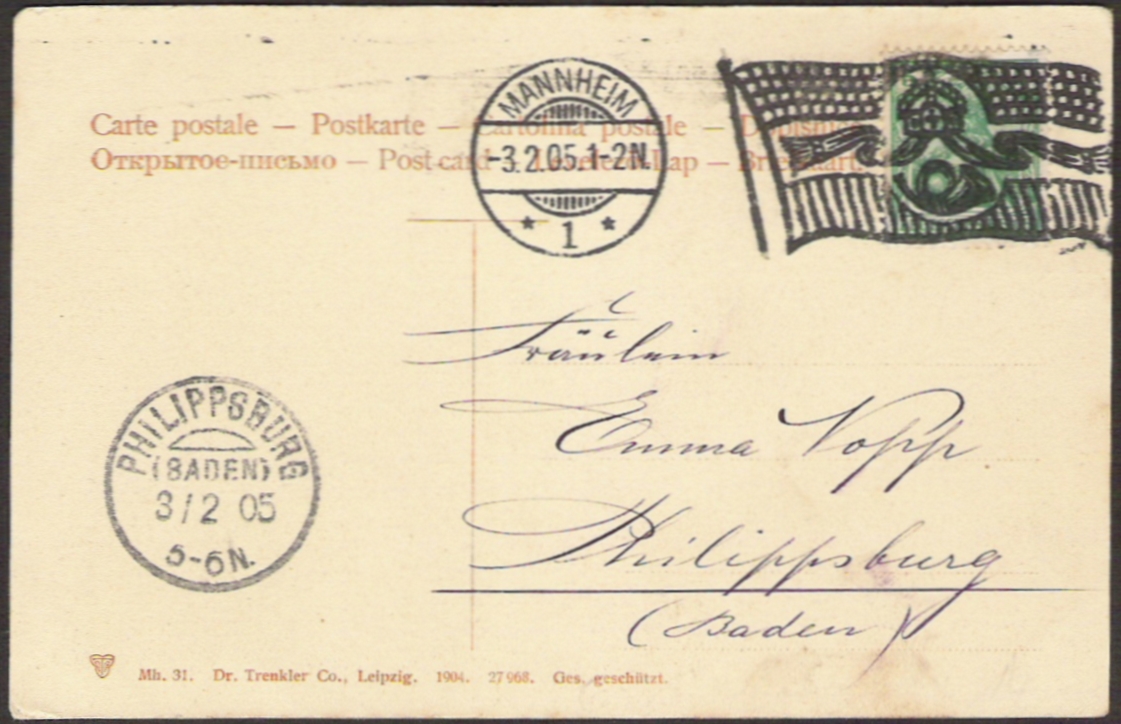 Carte postale — Postkarte — Cartolina postale — Dopisnice
Открытое-письмо — Post-card — Levelező-Lap — Briefkaart.
MANNHEIM
-3.2.05.1-2N.
* 1 *
Fräulein
Emma Vopp
Philippsburg
(Baden)
PHILIPPSBURG
(BADEN)
3/2 05
5-6N.
Mh. 31. Dr. Trenkler Co., Leipzig. 1904. 27968. Ges. geschützt.